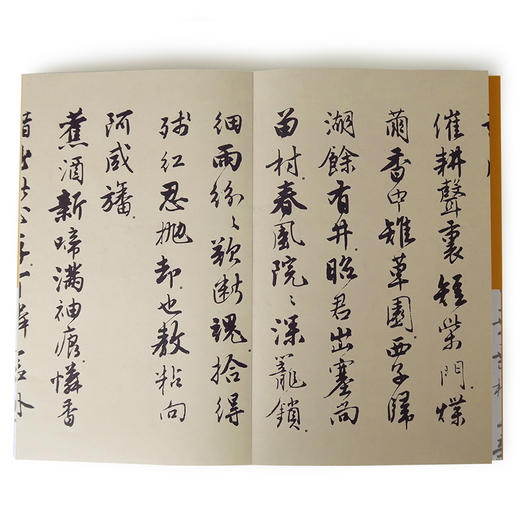 催耕聲裏短柴門煠
繭香中雉草園西子歸
湖餘有井昭君出塞尚
留村春風院〻深籠鎖
細雨紛〻欲斷魂拾得
殘紅忍拋却也教粘向
阿咸旛
舊酒新啼滿袖痕憐香